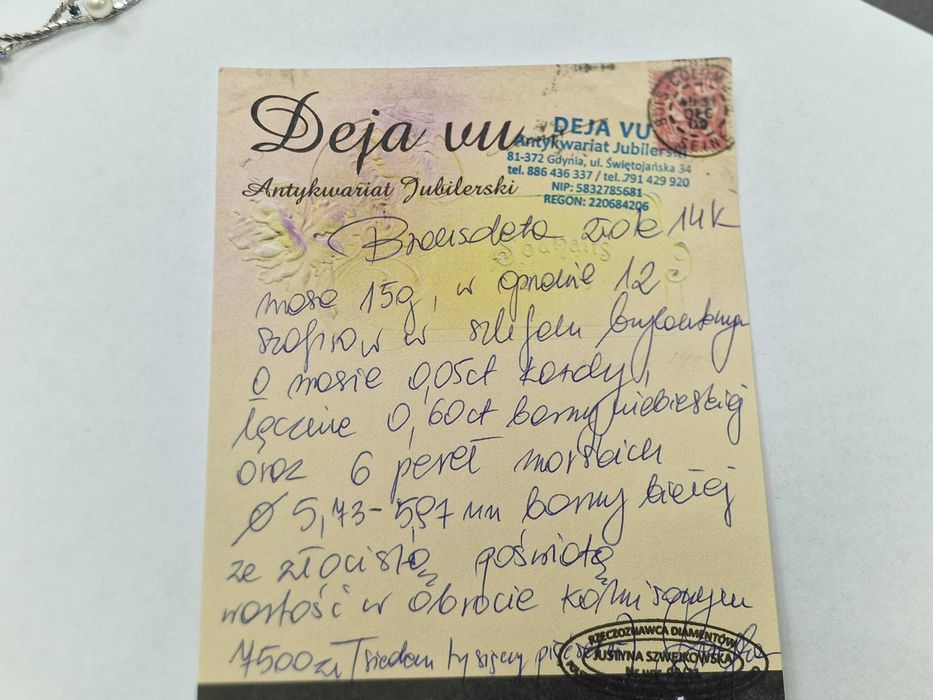 Deja vu
Antykwariat Jubilerski
DEJA VU
Antykwariat Jubilerski
81-372 Gdynia, ul. Świętojańska 34
tel. 886 436 337 / tel. 791 429 920
NIP: 5832785681
REGON: 220684206
COLOM
SEINE
Souhaits
Bransoleta złota 14K
masa 15g, w oprawie 12
szafirów w szlifem brylantowym
o masie 0,05ct każdy,
łącznie 0,60ct barwy niebieskiej
oraz 6 pereł morskich
Ø 5,73-5,97 mm barwy białej
ze złocistą poświatą
wartość w obrocie komisowym
7500zł siedem tysięcy
RZECZOZNAWCA DIAMENTÓW
JUSTYNA SZWEJKOWSKA